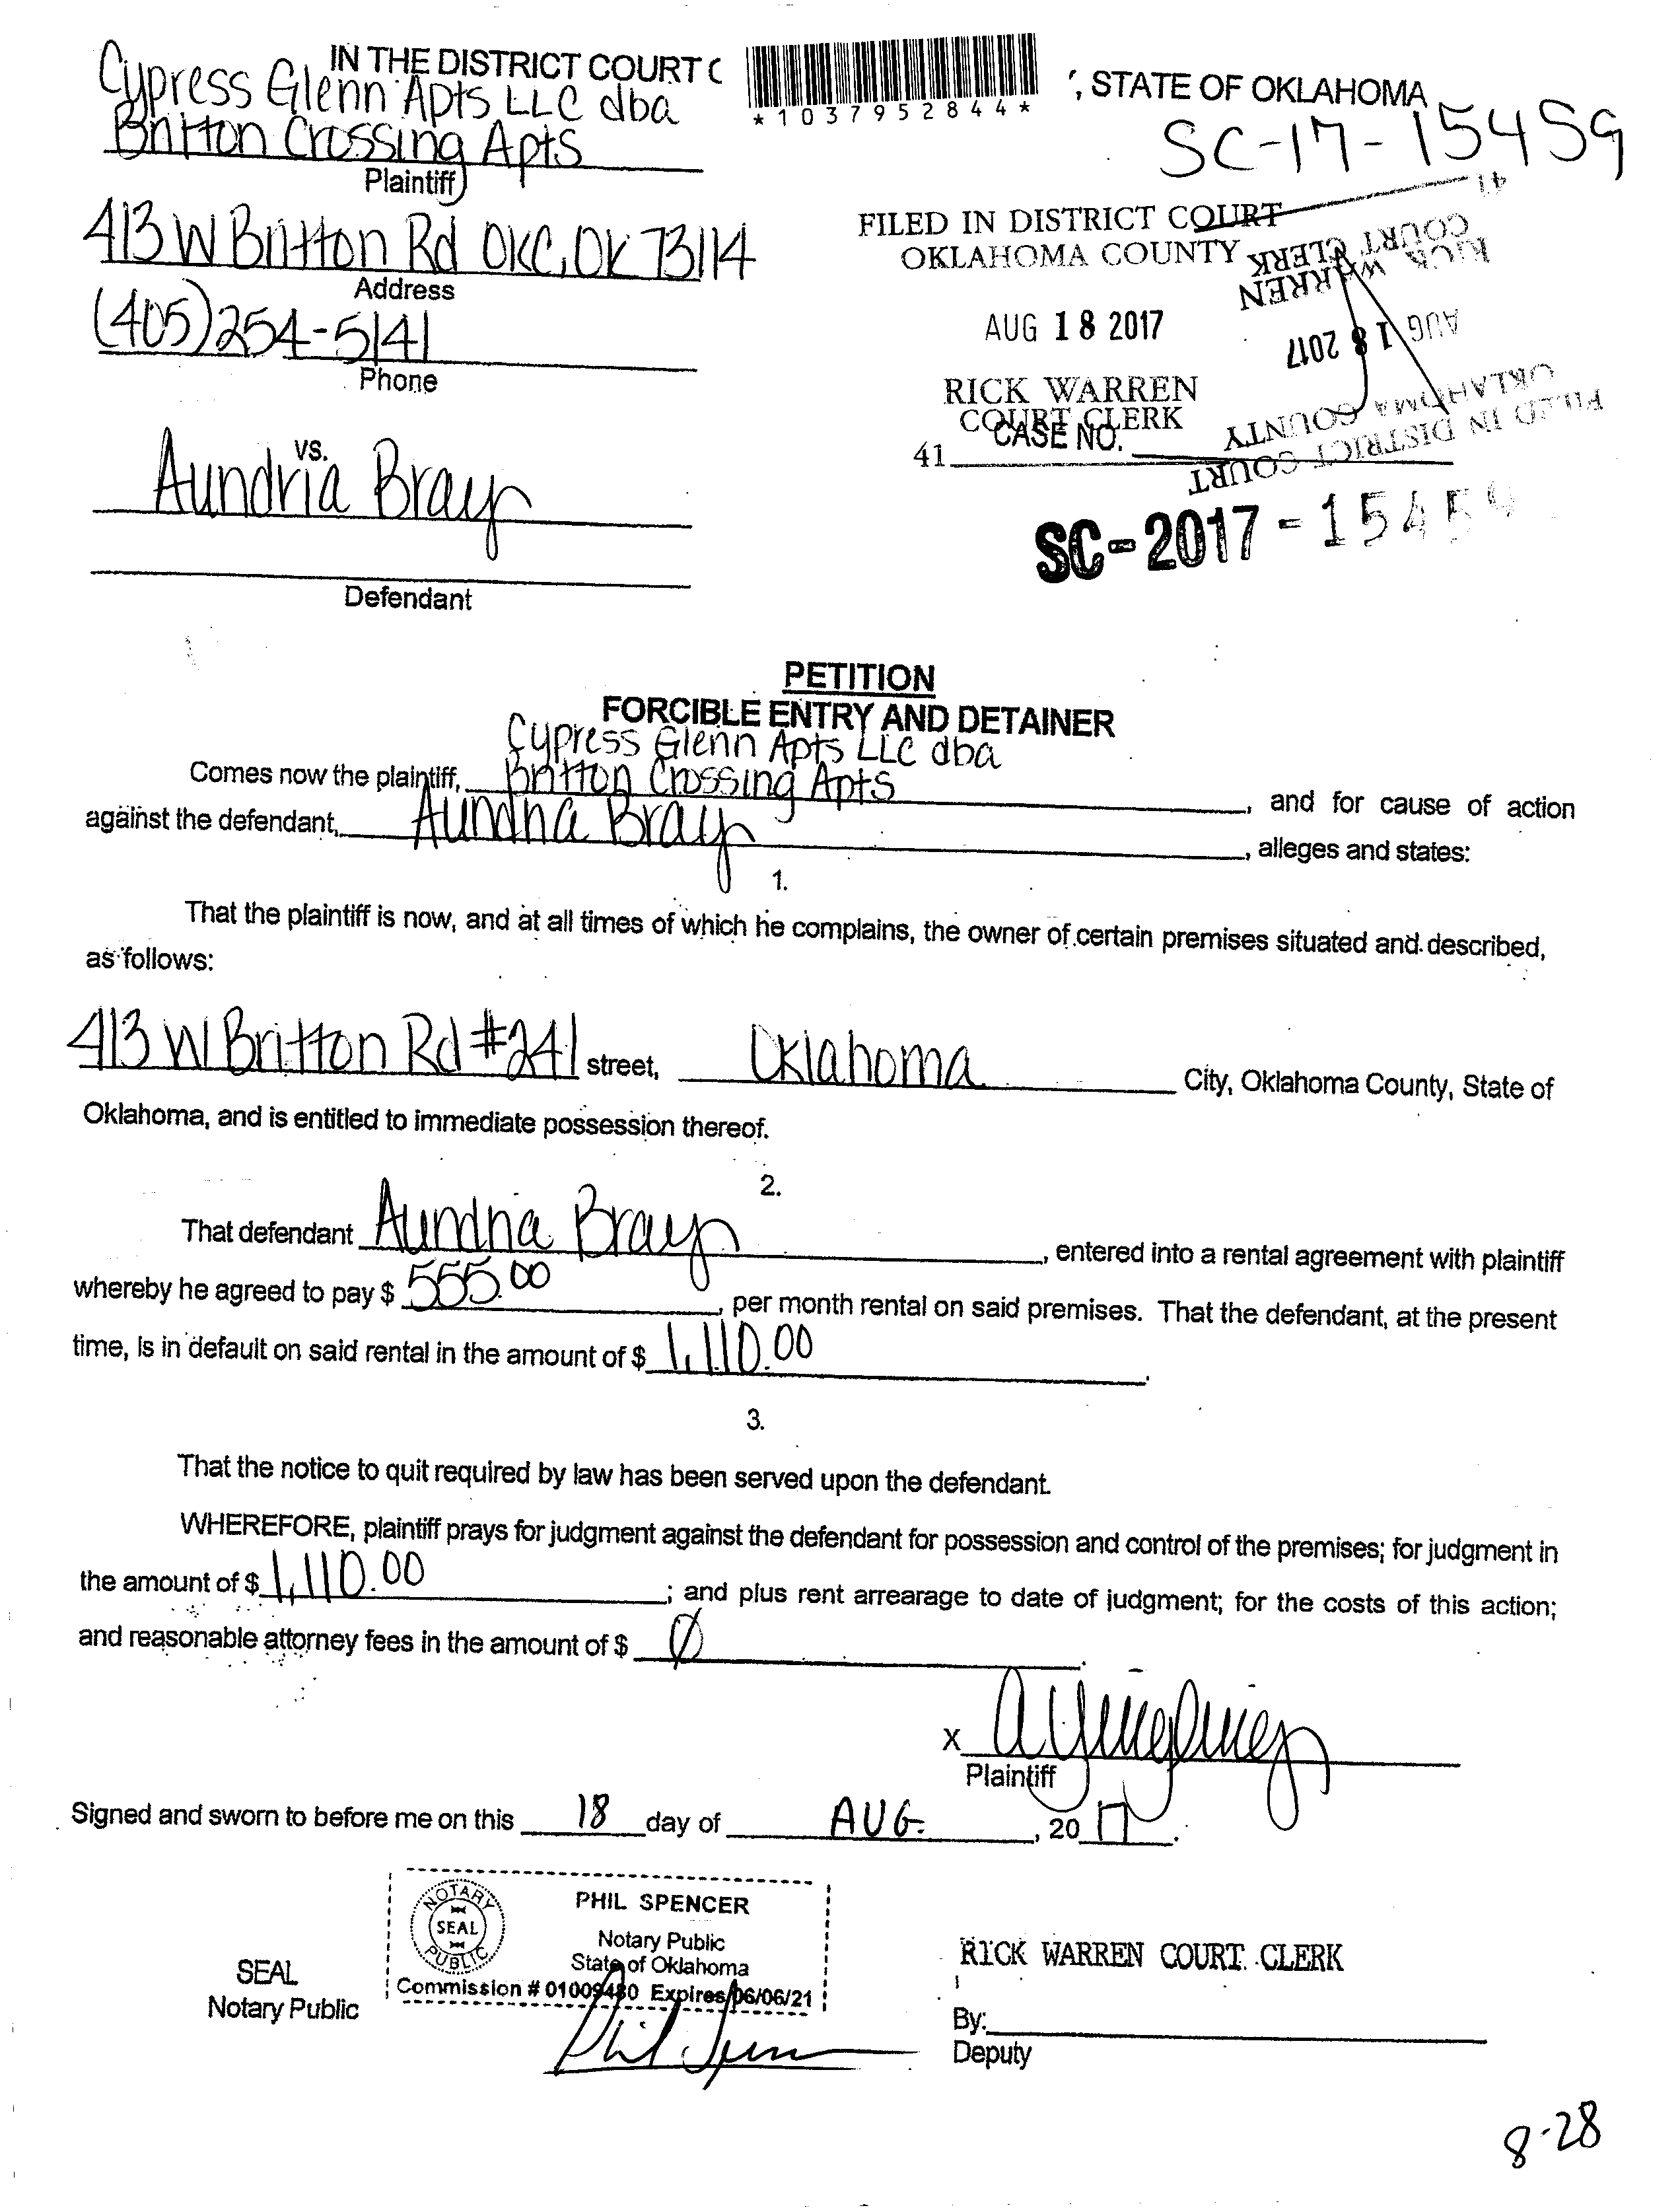 IN THE DISTRICT COURT
, STATE OF OKLAHOMA
*1037952844*
Cypress Glenn Apts LLC dba
Britton Crossing Apts
Plaintiff
SC-17-15459
413 W Britton Rd OKC, OK 73114
Address
(405)254-5141
Phone
FILED IN DISTRICT COURT
OKLAHOMA COUNTY
AUG 18 2017
RICK WARREN
COURT CLERK
41
FILED IN DISTRICT COURT
OKLAHOMA COUNTY
AUG 18 2017
RICK WARREN
COURT CLERK
41
CASE NO.
SC-2017-15459
vs.
Aundria Bray
Defendant
PETITION
FORCIBLE ENTRY AND DETAINER
Cypress Glenn Apts LLC dba
Comes now the plaintiff, Britton Crossing Apts, and for cause of action
against the defendant, Aundria Bray, alleges and states:
1.
That the plaintiff is now, and at all times of which he complains, the owner of certain premises situated and described,
as follows:
413 W Britton Rd #241 street, Oklahoma City, Oklahoma County, State of
Oklahoma, and is entitled to immediate possession thereof.
2.
That defendant Aundria Bray, entered into a rental agreement with plaintiff
whereby he agreed to pay $ 555.00, per month rental on said premises. That the defendant, at the present
time, is in default on said rental in the amount of $ 1,110.00.
3.
That the notice to quit required by law has been served upon the defendant.
WHEREFORE, plaintiff prays for judgment against the defendant for possession and control of the premises; for judgment in
the amount of $ 1,110.00; and plus rent arrearage to date of judgment; for the costs of this action;
and reasonable attorney fees in the amount of $ Ø.
X
Plaintiff
Signed and sworn to before me on this 18 day of AUG., 2017.
NOTARY
SEAL
PUBLIC
PHIL SPENCER
Notary Public
State of Oklahoma
Commission # 01009480 Expires 06/06/21
SEAL
Notary Public
Phil Spencer
RICK WARREN COURT CLERK
By:
Deputy
8-28